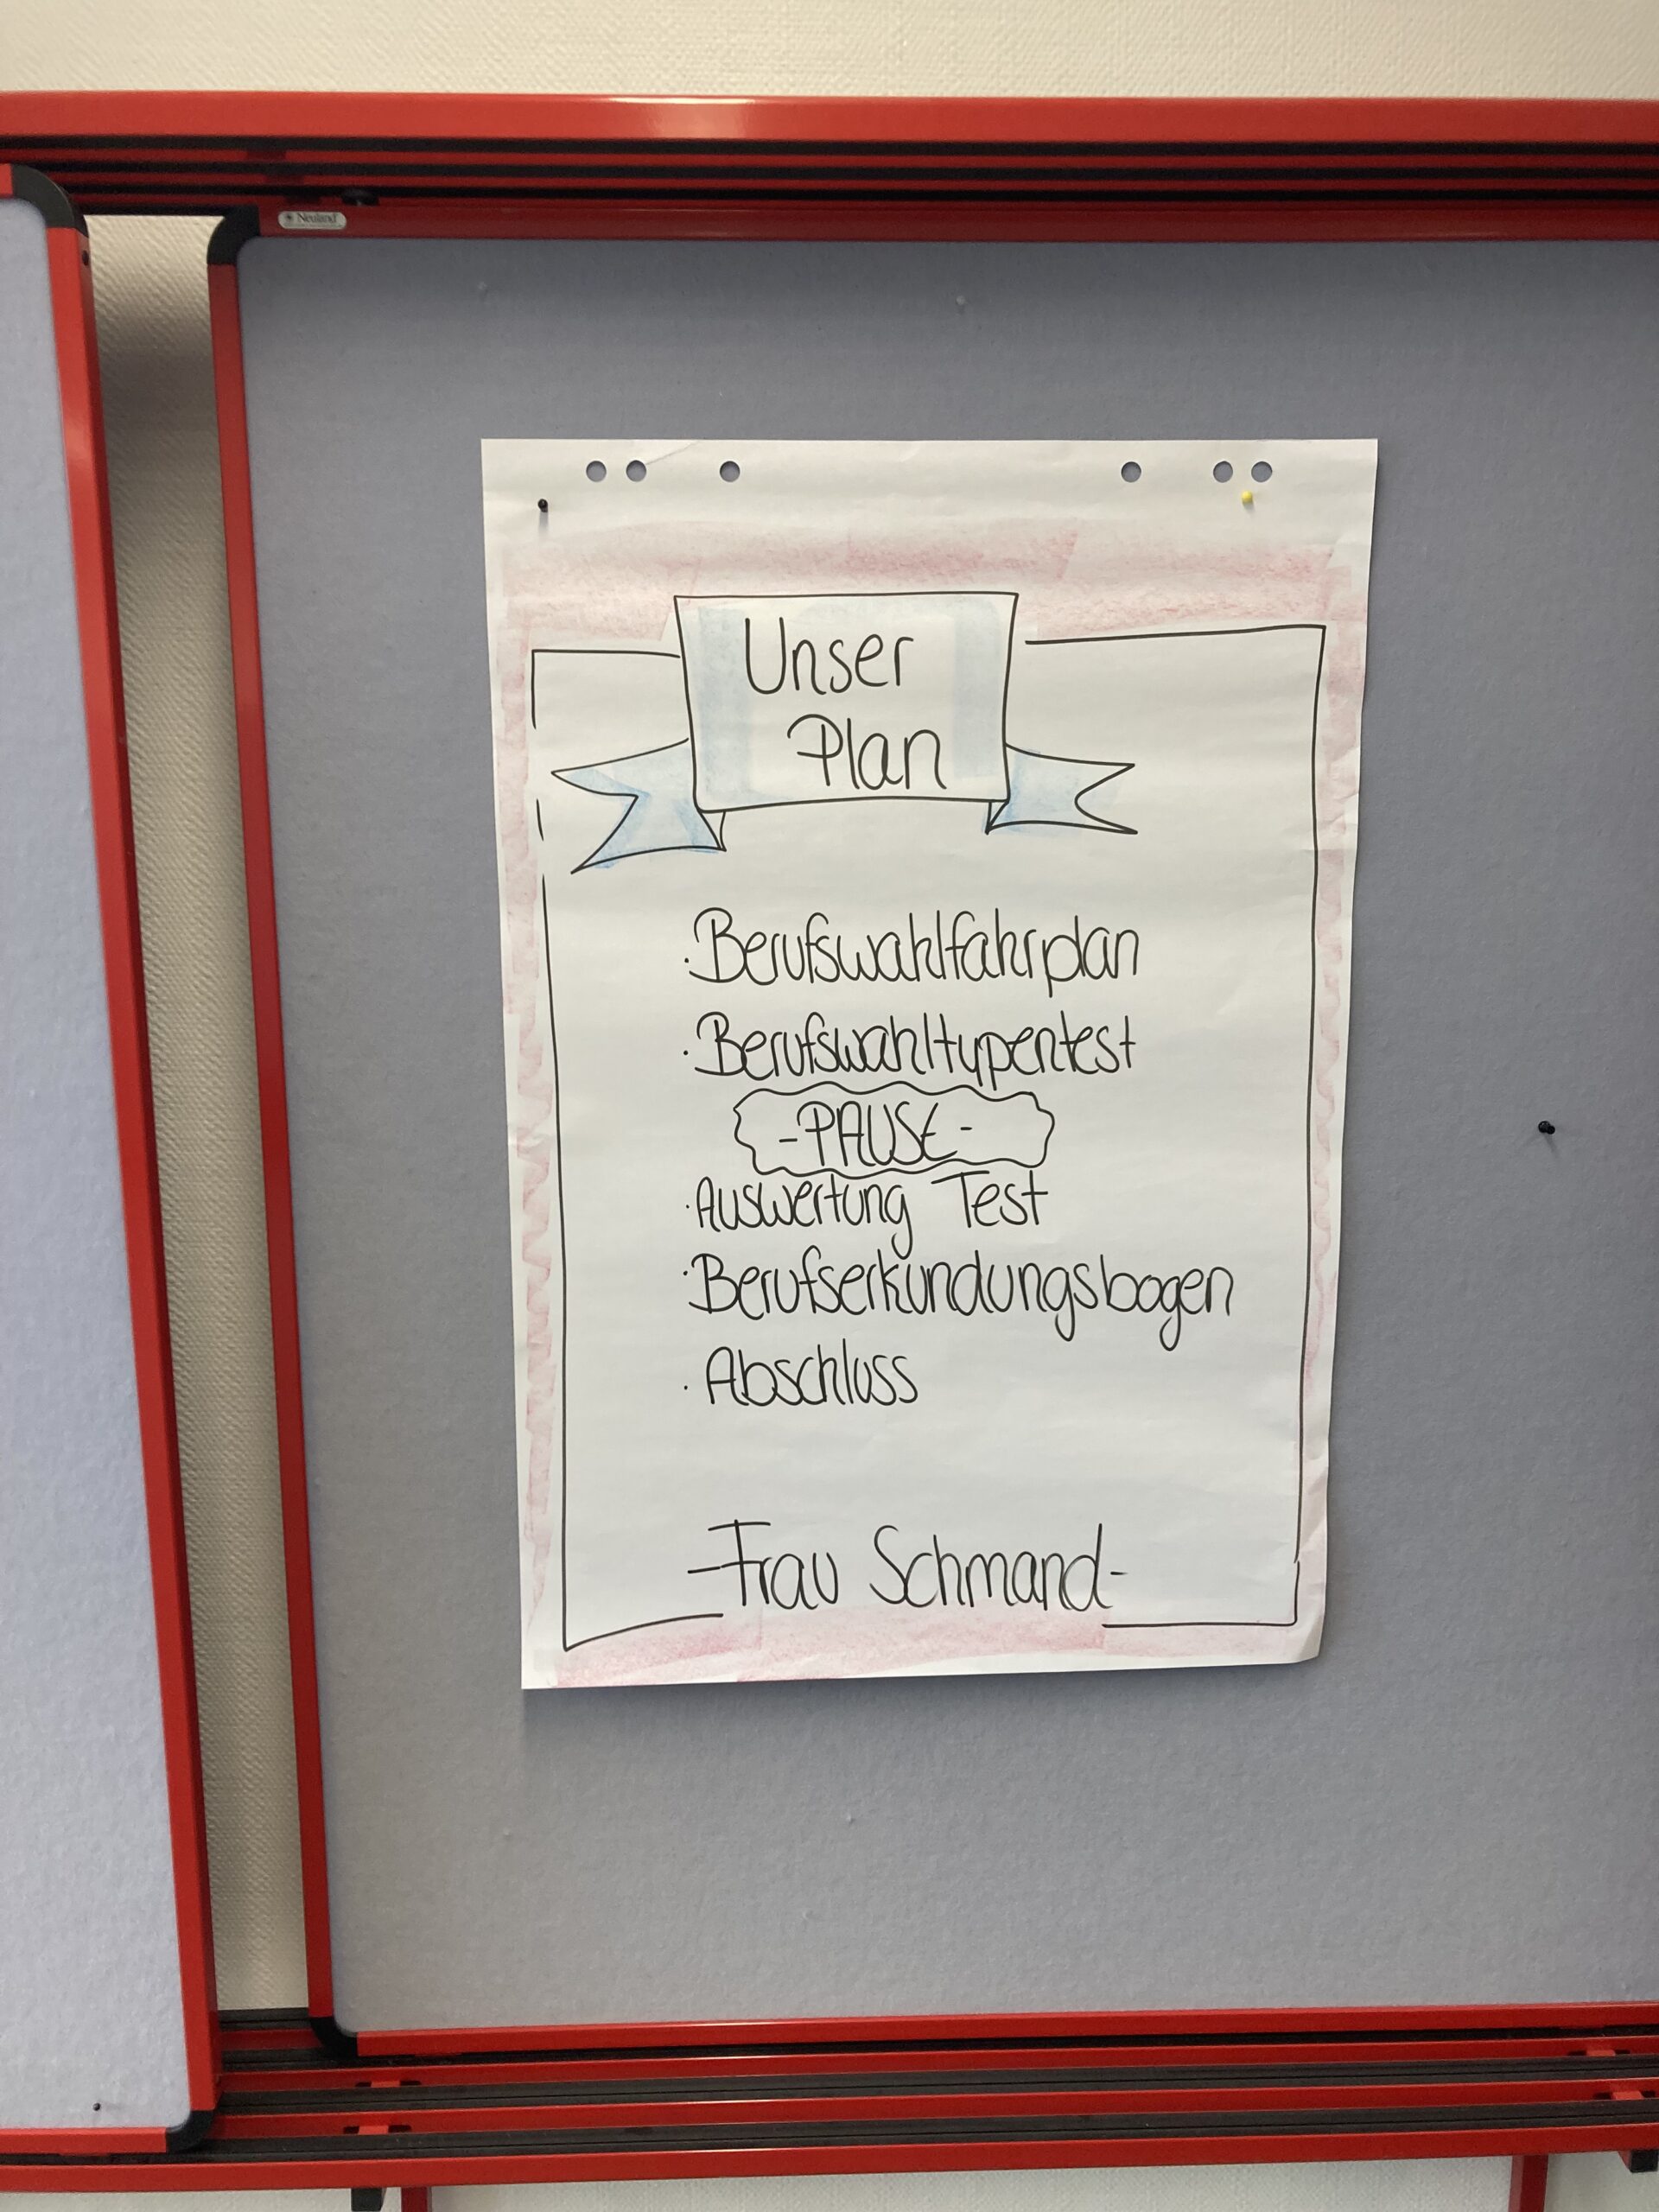 Neuland
Unser
Plan
· Berufswahlfahrplan
· Berufswahltypentest
- PAUSE -
· Auswertung Test
· Berufserkundungsbogen
· Abschluss
- Frau Schmand -